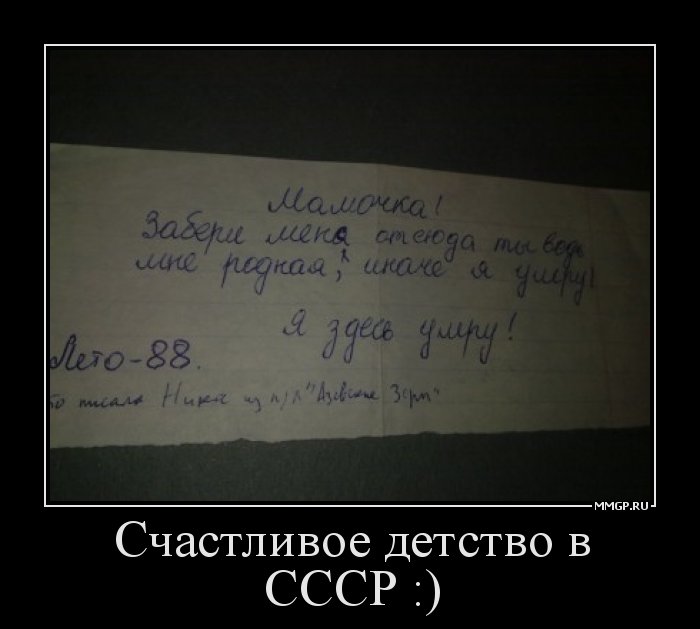 Мамочка!
Забери меня отсюда ты ведь
мне родная, иначе я умру!
Я здесь умру!
Лето-88.
писала Ника из п/л "Азовские Зори"
MMGP.RU
Счастливое детство в
СССР :)